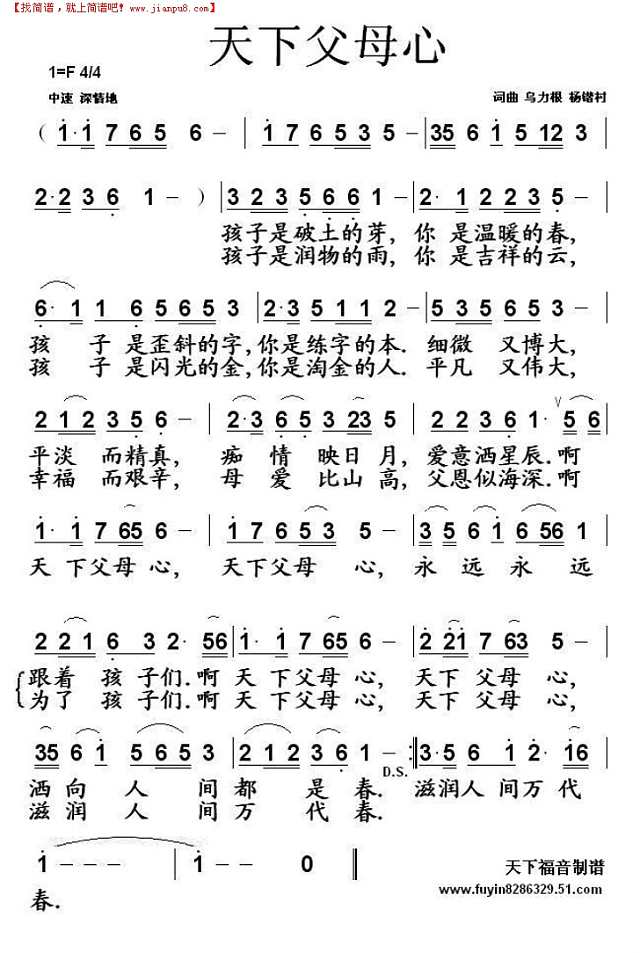 【找简谱，就上简谱吧! www.jianpu8.com】
天下父母心
1=F 4/4
中速 深情地
词曲 乌力根 杨锴村
( 1·1 7 6 5 6 – | 1 7 6 5 3 5 – | 35 6 1 5 12 3 |
2·2 3 6 1 – ) | 3 2 3 5 6 6 1 – | 2· 1 2 2 3 5 – |
孩子是破土的芽, 你 是温暖的春,
孩子是润物的雨, 你 是吉祥的云,
6· 1 1 6 5 6 5 3 | 2·3 5 1 1 2 – | 5 3 5 6 5 6 |
孩 子 是歪斜的字, 你是练字的本. 细微 又博大,
孩 子 是闪光的金, 你是淘金的人. 平凡 又伟大,
2 1 2 3 5 6 – | 2·3 6 5 3 23 5 | 2 2 3 7 6 1· V 5 6 |
平淡 而精真, 痴 情 映日 月, 爱意洒星辰. 啊
幸福 而艰辛, 母 爱 比山 高, 父恩似海深. 啊
1· 1 7 65 6 – | 1 7 6 5 3 5 – | 3 5 6 1 6 56 1 |
天 下父母 心, 天下父母 心, 永 远 永 远
2 2 1 6 3 2· 56 | 1· 1 7 65 6 – | 2 21 7 63 5 – |
跟着 孩 子们. 啊 天 下父母 心, 天下 父母 心,
为了 孩 子们. 啊 天 下父母 心, 天下 父母 心,
35 6 1 5 6 5 3 | 2 1 2 3 6 1 – :| 3·5 6 1· 2· 16 |
D.S.
洒 向 人 间 都 是 春. 滋润人 间万 代
滋 润 人 间 万 代 春.
1 – – – | 1 – – 0 ‖
天下福音制谱
www.fuyin8286329.51.com
春.